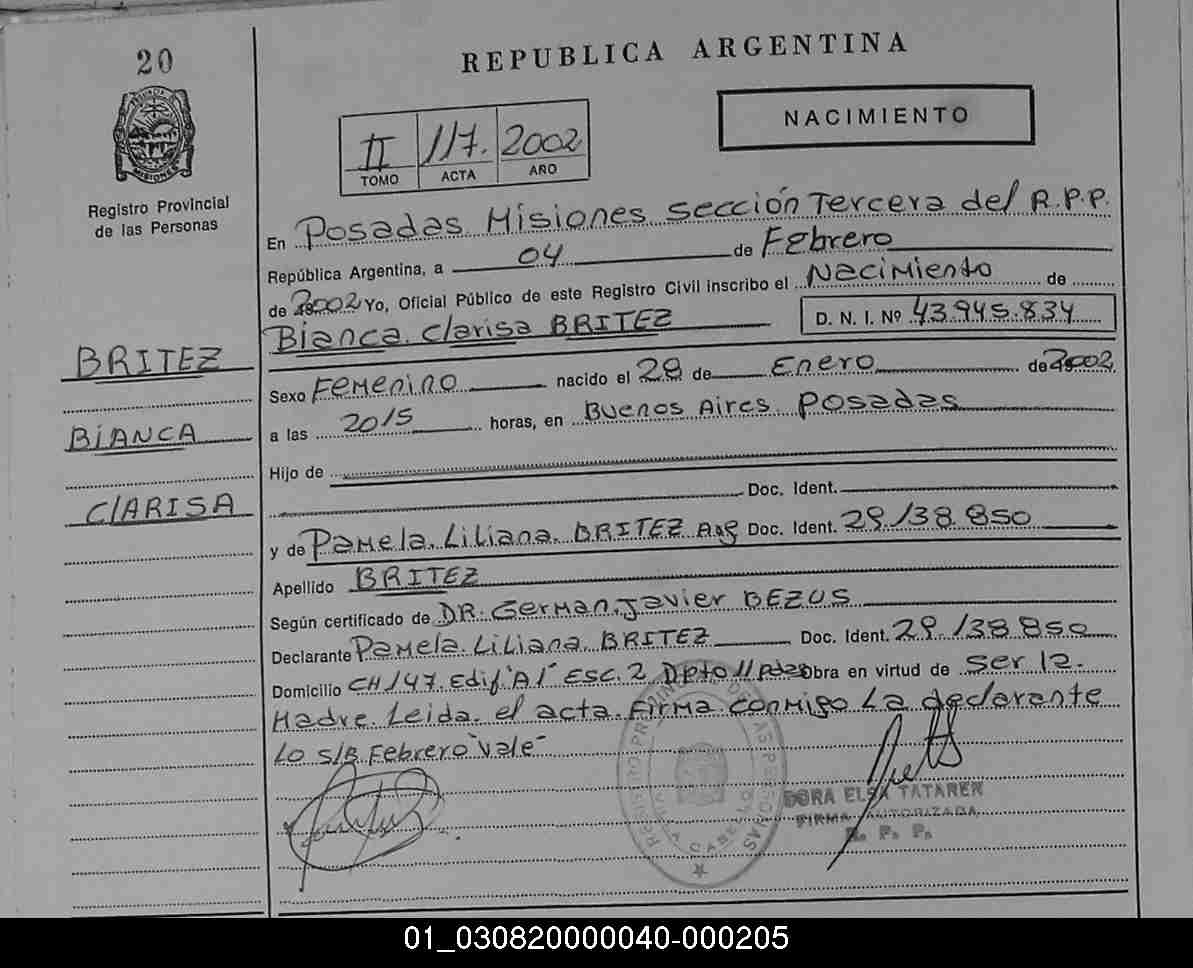 20
REPUBLICA ARGENTINA
NACIMIENTO
II 117. 2002
TOMO ACTA AÑO
Registro Provincial
de las Personas
MISIONES
En Posadas Misiones sección Tercera del R.P.P.
República Argentina, a 04 de Febrero
de 2002 Yo, Oficial Público de este Registro Civil inscribo el Nacimiento de
Bianca Clarisa BRITEZ D. N. I. Nº 43.945.834
BRITEZ
BIANCA
CLARISA
Sexo Femenino nacido el 28 de Enero de 2002
a las 2015 horas, en Buenos Aires Posadas
Hijo de
Doc. Ident.
y de Pamela Liliana BRITEZ Arg Doc. Ident. 29138850
Apellido BRITEZ
Según certificado de DR. German Javier BEZUS
Declarante Pamela Liliana BRITEZ Doc. Ident. 29138850
Domicilio CH 147 Edif "A1" ESC. 2 Dpto 11 Pdas Obra en virtud de ser la
Madre Leida el acta Firma conmigo La declarante
Lo S/B Febrero "Vale"
DORA ELSA TATAREN
FIRMA AUTORIZADA
R. P. P.
01_030820000040-000205